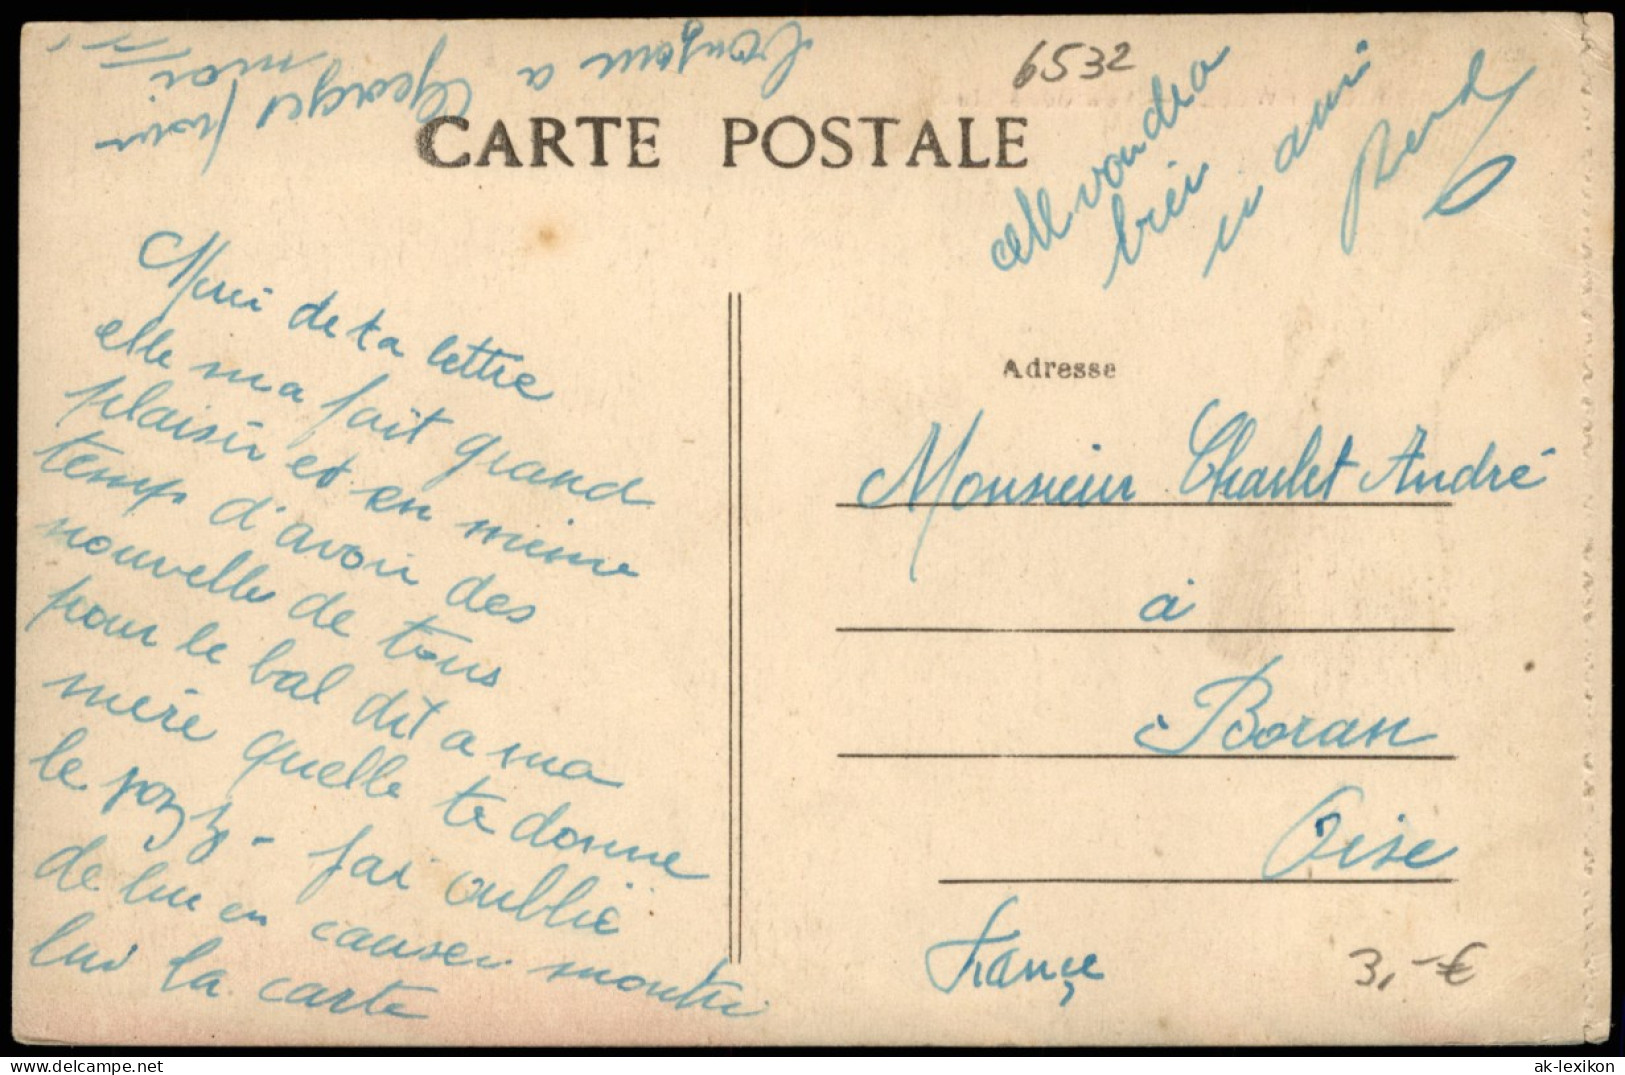 bonjour a Georges pour
moi
6532
CARTE POSTALE
elle voudra
bien
un ami
Merci de ta lettre
elle m a fait grand
plaisir et en meme
temps d'avoir des
nouvelles de tous
pour le bal dit a ma
mère quelle te donne
le
- j'ai oublié
de lui en causer montre
lui la carte
Adresse
Monsieur Charlet André
à
Boran
Oise
France
3,-€
ak-lexikon